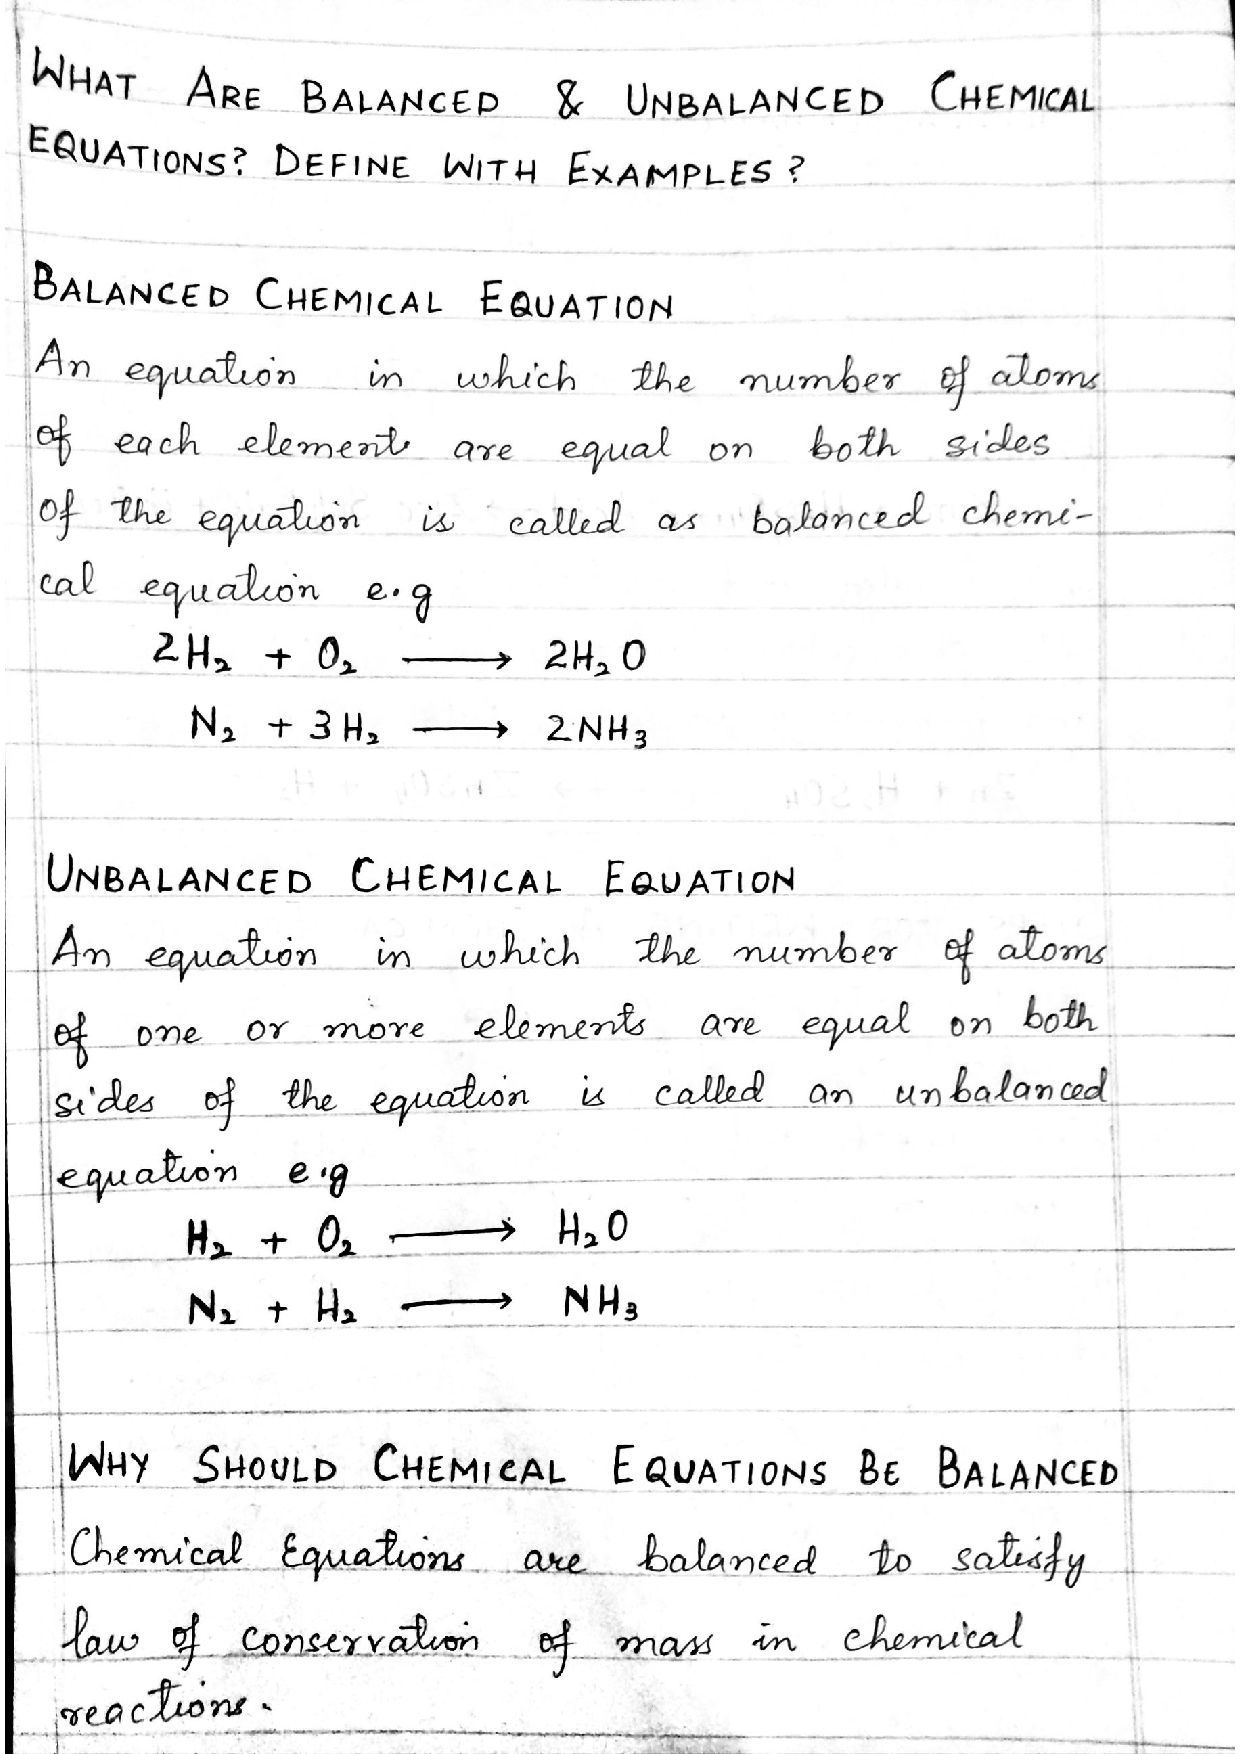 WHAT ARE BALANCED & UNBALANCED CHEMICAL
EQUATIONS? DEFINE WITH EXAMPLES?
BALANCED CHEMICAL EQUATION
An equation in which the number of atoms
of each element are equal on both sides
of the equation is called as balanced chemi-
cal equation e.g
2H₂ + O₂ ⟶ 2H₂O
N₂ + 3H₂ ⟶ 2NH₃
UNBALANCED CHEMICAL EQUATION
An equation in which the number of atoms
of one or more elements are equal on both
sides of the equation is called an unbalanced
equation e.g
H₂ + O₂ ⟶ H₂O
N₂ + H₂ ⟶ NH₃
WHY SHOULD CHEMICAL EQUATIONS BE BALANCED
Chemical Equations are balanced to satisfy
law of conservation of mass in chemical
reactions.